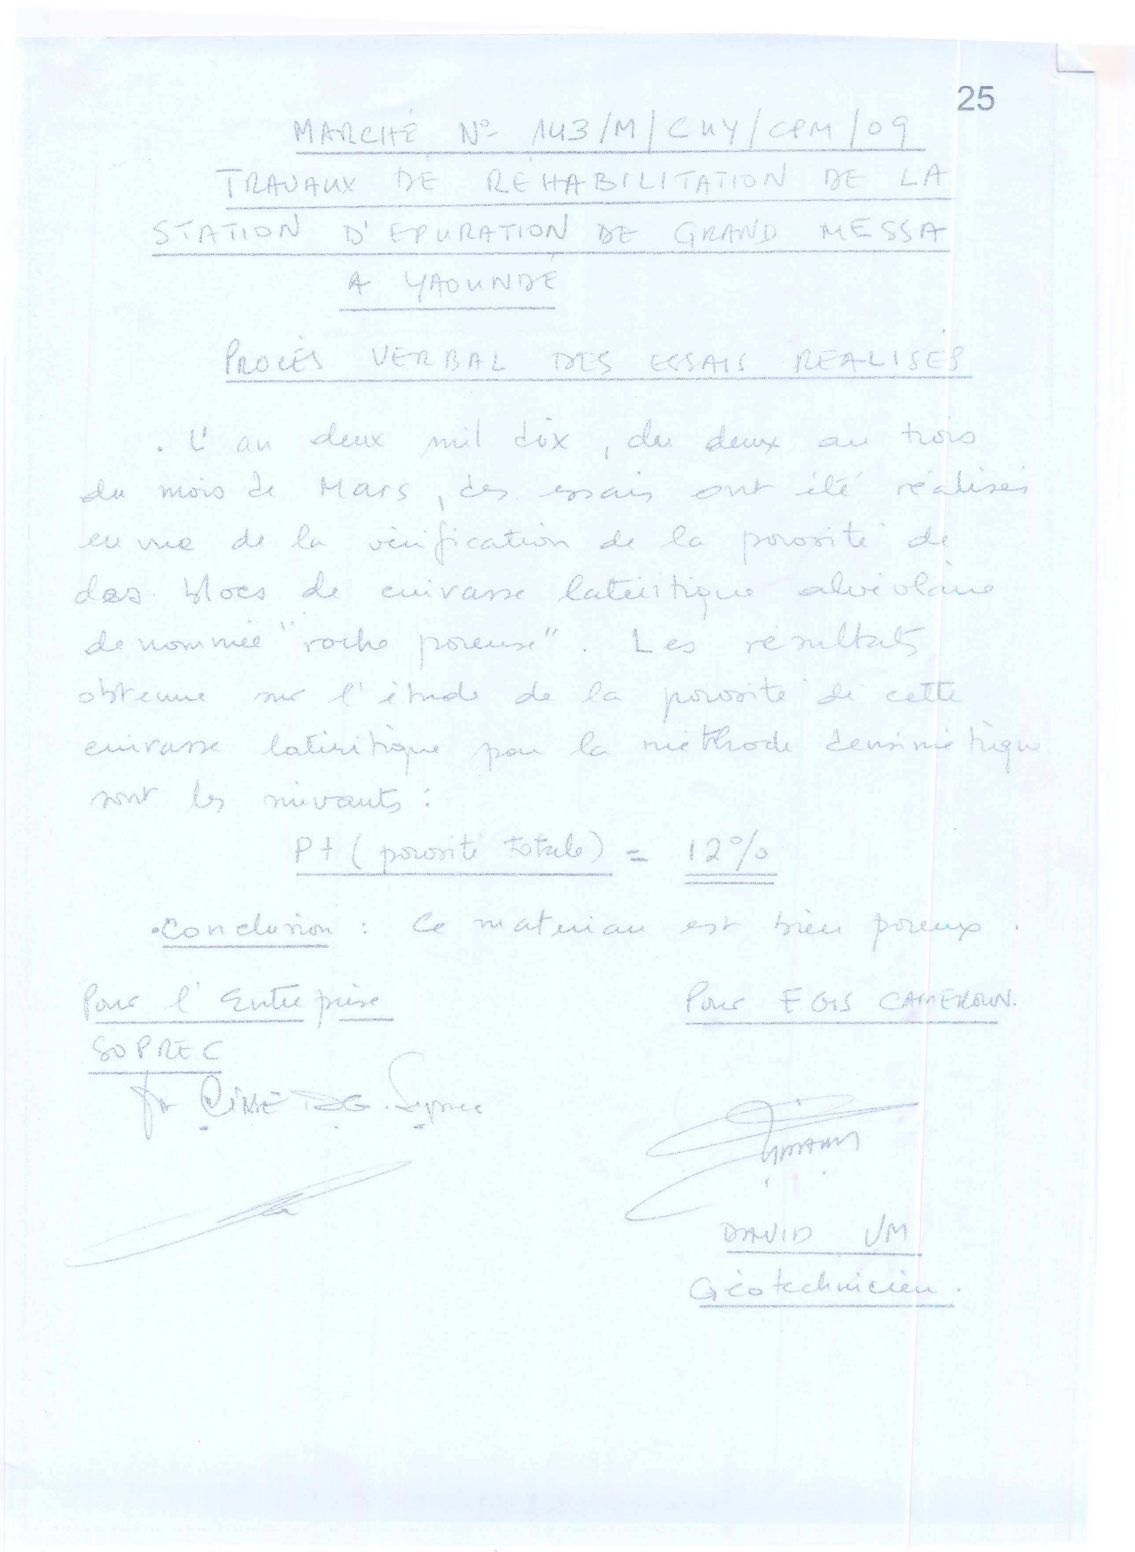 25
MARCHÉ N° 143/M/CUY/CPM/09
TRAVAUX DE REHABILITATION DE LA
STATION D'EPURATION DE GRAND MESSA
A YAOUNDÉ
PROCÈS VERBAL DES ESSAIS REALISÉS
. L'an deux mil dix, du deux au trois
du mois de Mars, des essais ont été réalisés
en vue de la vérification de la porosité de
des blocs de cuirasse latéritique alvéolaire
denommée "roche poreuse". Les résultats
obtenue sur l'étude de la porosité de cette
cuirasse latéritique par la méthode densimétrique
sont les suivants :
Pt (porosité totale) = 12%
.Conclusion : Ce materiau est bien poreux.
Pour l'Entreprise
Pour EGIS CAMEROUN.
SOPREC
DG.
DAVID
Géotechnicien.